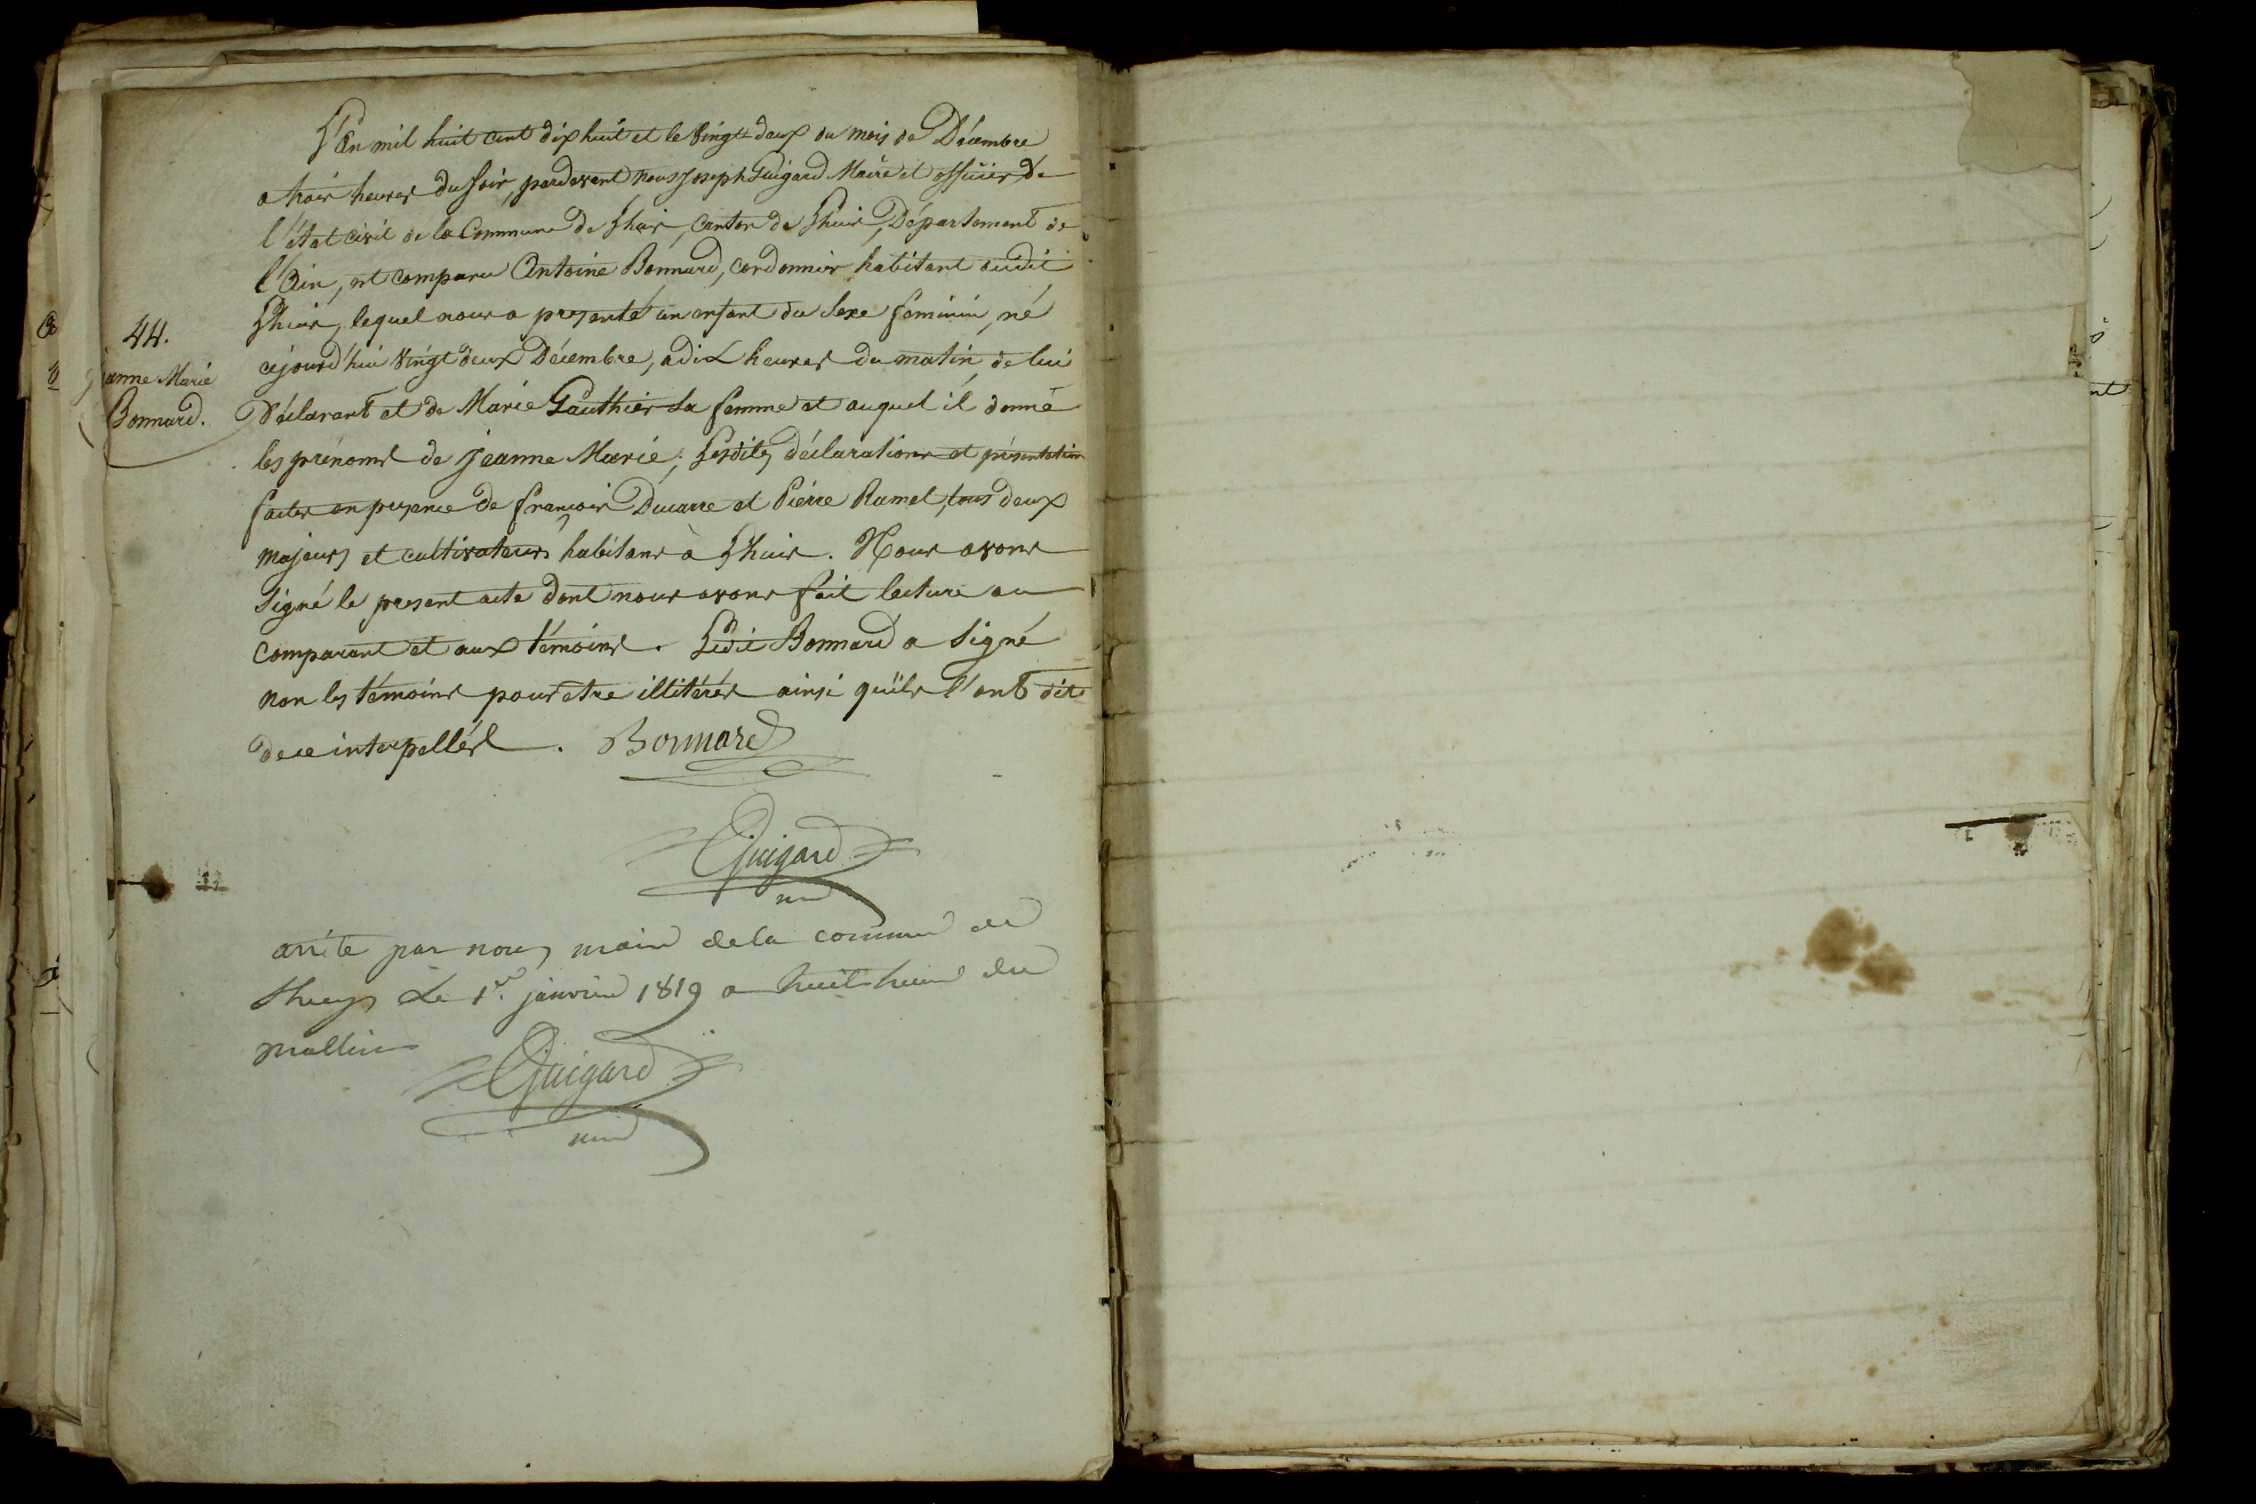 L'an mil huit cent dix huit et le vingt deux du mois de Décembre
a trois heures du soir, pardevant nous Joseph Guigard Maire et officier de
l'état civil de la Commune de Lhuis, canton de Lhuis, Département de
l'Ain, est comparu Antoine Bonnard, cordonnier habitant audit
Lhuis, lequel nous a presenté un enfant du sexe feminin, né
cejourd'hui vingt deux Décembre, a dix heures du matin, de lui
Déclarant et de Marie Gauthier sa femme et auquel il donné
les prénoms de Jeanne Marie; Lesdites déclarations et présentation
faites en presence de françois Ducarre et Pierre Ramel, tous deux
majeurs et cultivateurs habitans à Lhuis. Nous avons
signé le present acte dont nous avons fait lecture au
comparant et aux témoins. Ledit Bonnard a signé
non les témoins pour etre illitérés ainsi qu'ils l'ont dit
de ce interpellés. Bonnard
44.
Jeanne Marie
Bonnard.
Guigard
arrêté par nous maire de la commune de
Lhuys Le 1er. janvier 1819 a huit heures du
mattin
Guigard